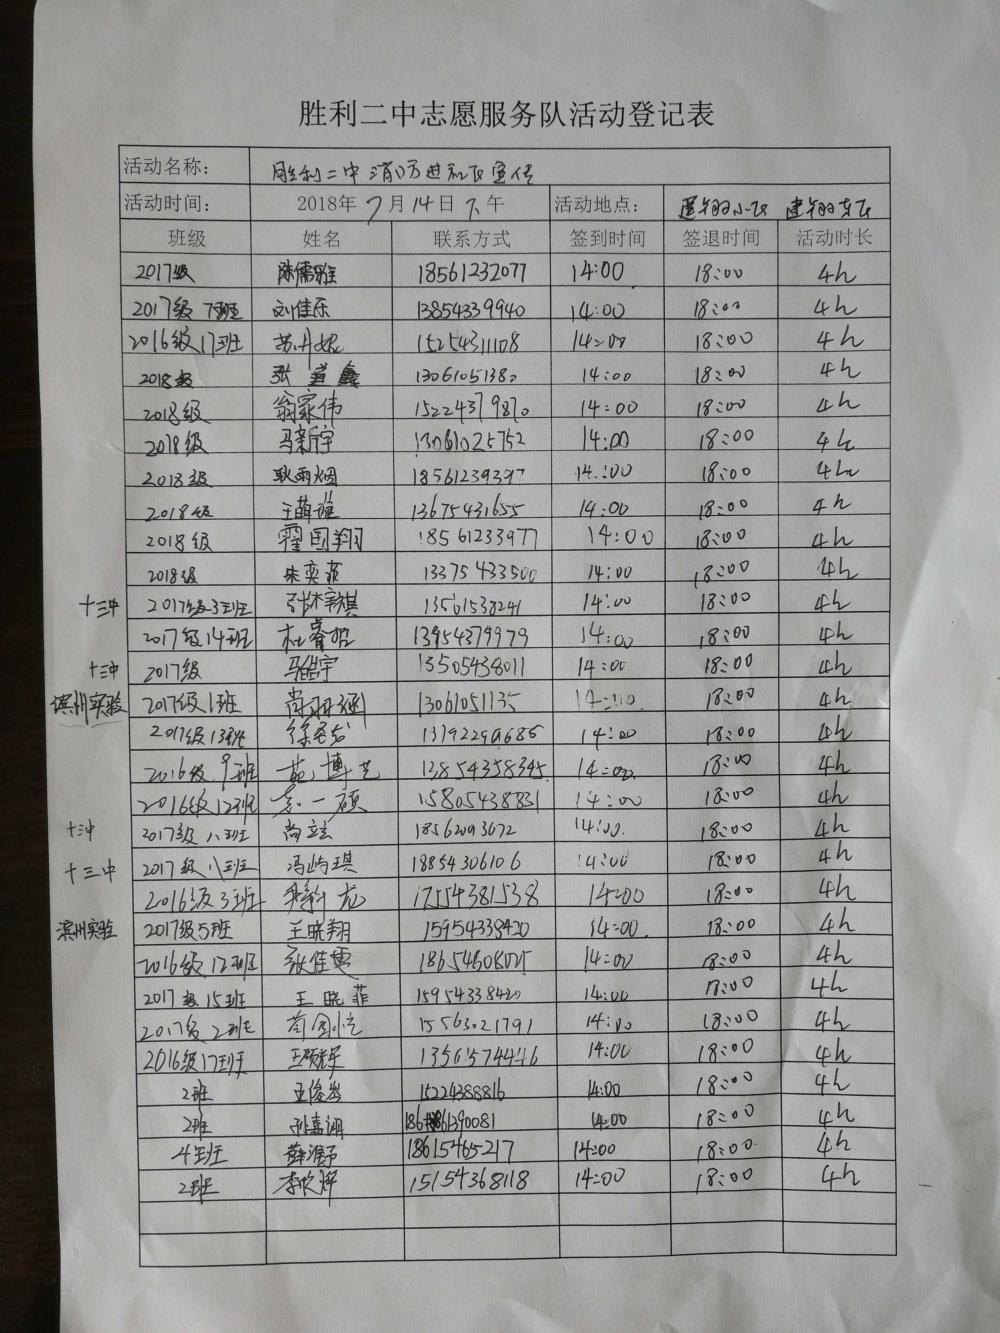 胜利二中志愿服务队活动登记表
活动名称： 胜利二中消防进社区宣传
活动时间： 2018年7月14日下午 活动地点：
班级 姓名 联系方式 签到时间 签退时间 活动时长
2017级 18561232077 14:00 18:00 4h
2017级 7班 刘佳乐 13854339940 14:00 18:00 4h
2016级17班 15254311108 14:00 18:00 4h
2018级 张 鑫 13061051380 14:00 18:00 4h
2018级 翁家伟 15224379870 14:00 18:00 4h
2018级 马新宇 13061025752 14:00 18:00 4h
2018级 耿雨烟 18561239397 14:00 18:00 4h
2018级 王萌 13675431655 14:00 18:00 4h
2018级 霍国翔 18561233977 14:00 18:00 4h
2018级 朱奕菲 13375433500 14:00 18:00 4h
十三中 2017级3班 13561538241 14:00 18:00 4h
2017级14班 杜睿哲 13954379979 14:00 18:00 4h
十三中 2017级 马皓宇 13505438011 14:00 18:00 4h
滨州实验 2017级1班 尚 涵 13061051135 14:00 18:00 4h
2017级13班 徐 龙 14:00 18:00 4h
2016级9班 博艺 13854358345 14:00 18:00 4h
2016级12班 一硕 15805438831 14:00 18:00 4h
十三中 2017级 八班 尚 14:00 18:00 4h
十三中 2017级 八班 冯屿琪 18854306106 14:00 18:00 4h
2016级3班 龙 17554381538 14:00 18:00 4h
滨州实验 2017级5班 王晓翔 15954338420 14:00 18:00 4h
2016级12班 张佳雯 14:00 18:00 4h
2017级15班 王晓菲 15954338420 14:00 18:00 4h
2017级2班 15563021791 14:00 18:00 4h
2016级17班 14:00 18:00 4h
2班 王俊岩 15224388816 14:00 18:00 4h
2班 孙嘉 14:00 18:00 4h
4班 薛 18615465217 14:00 18:00 4h
2班 李欣 15154368118 14:00 18:00 4h